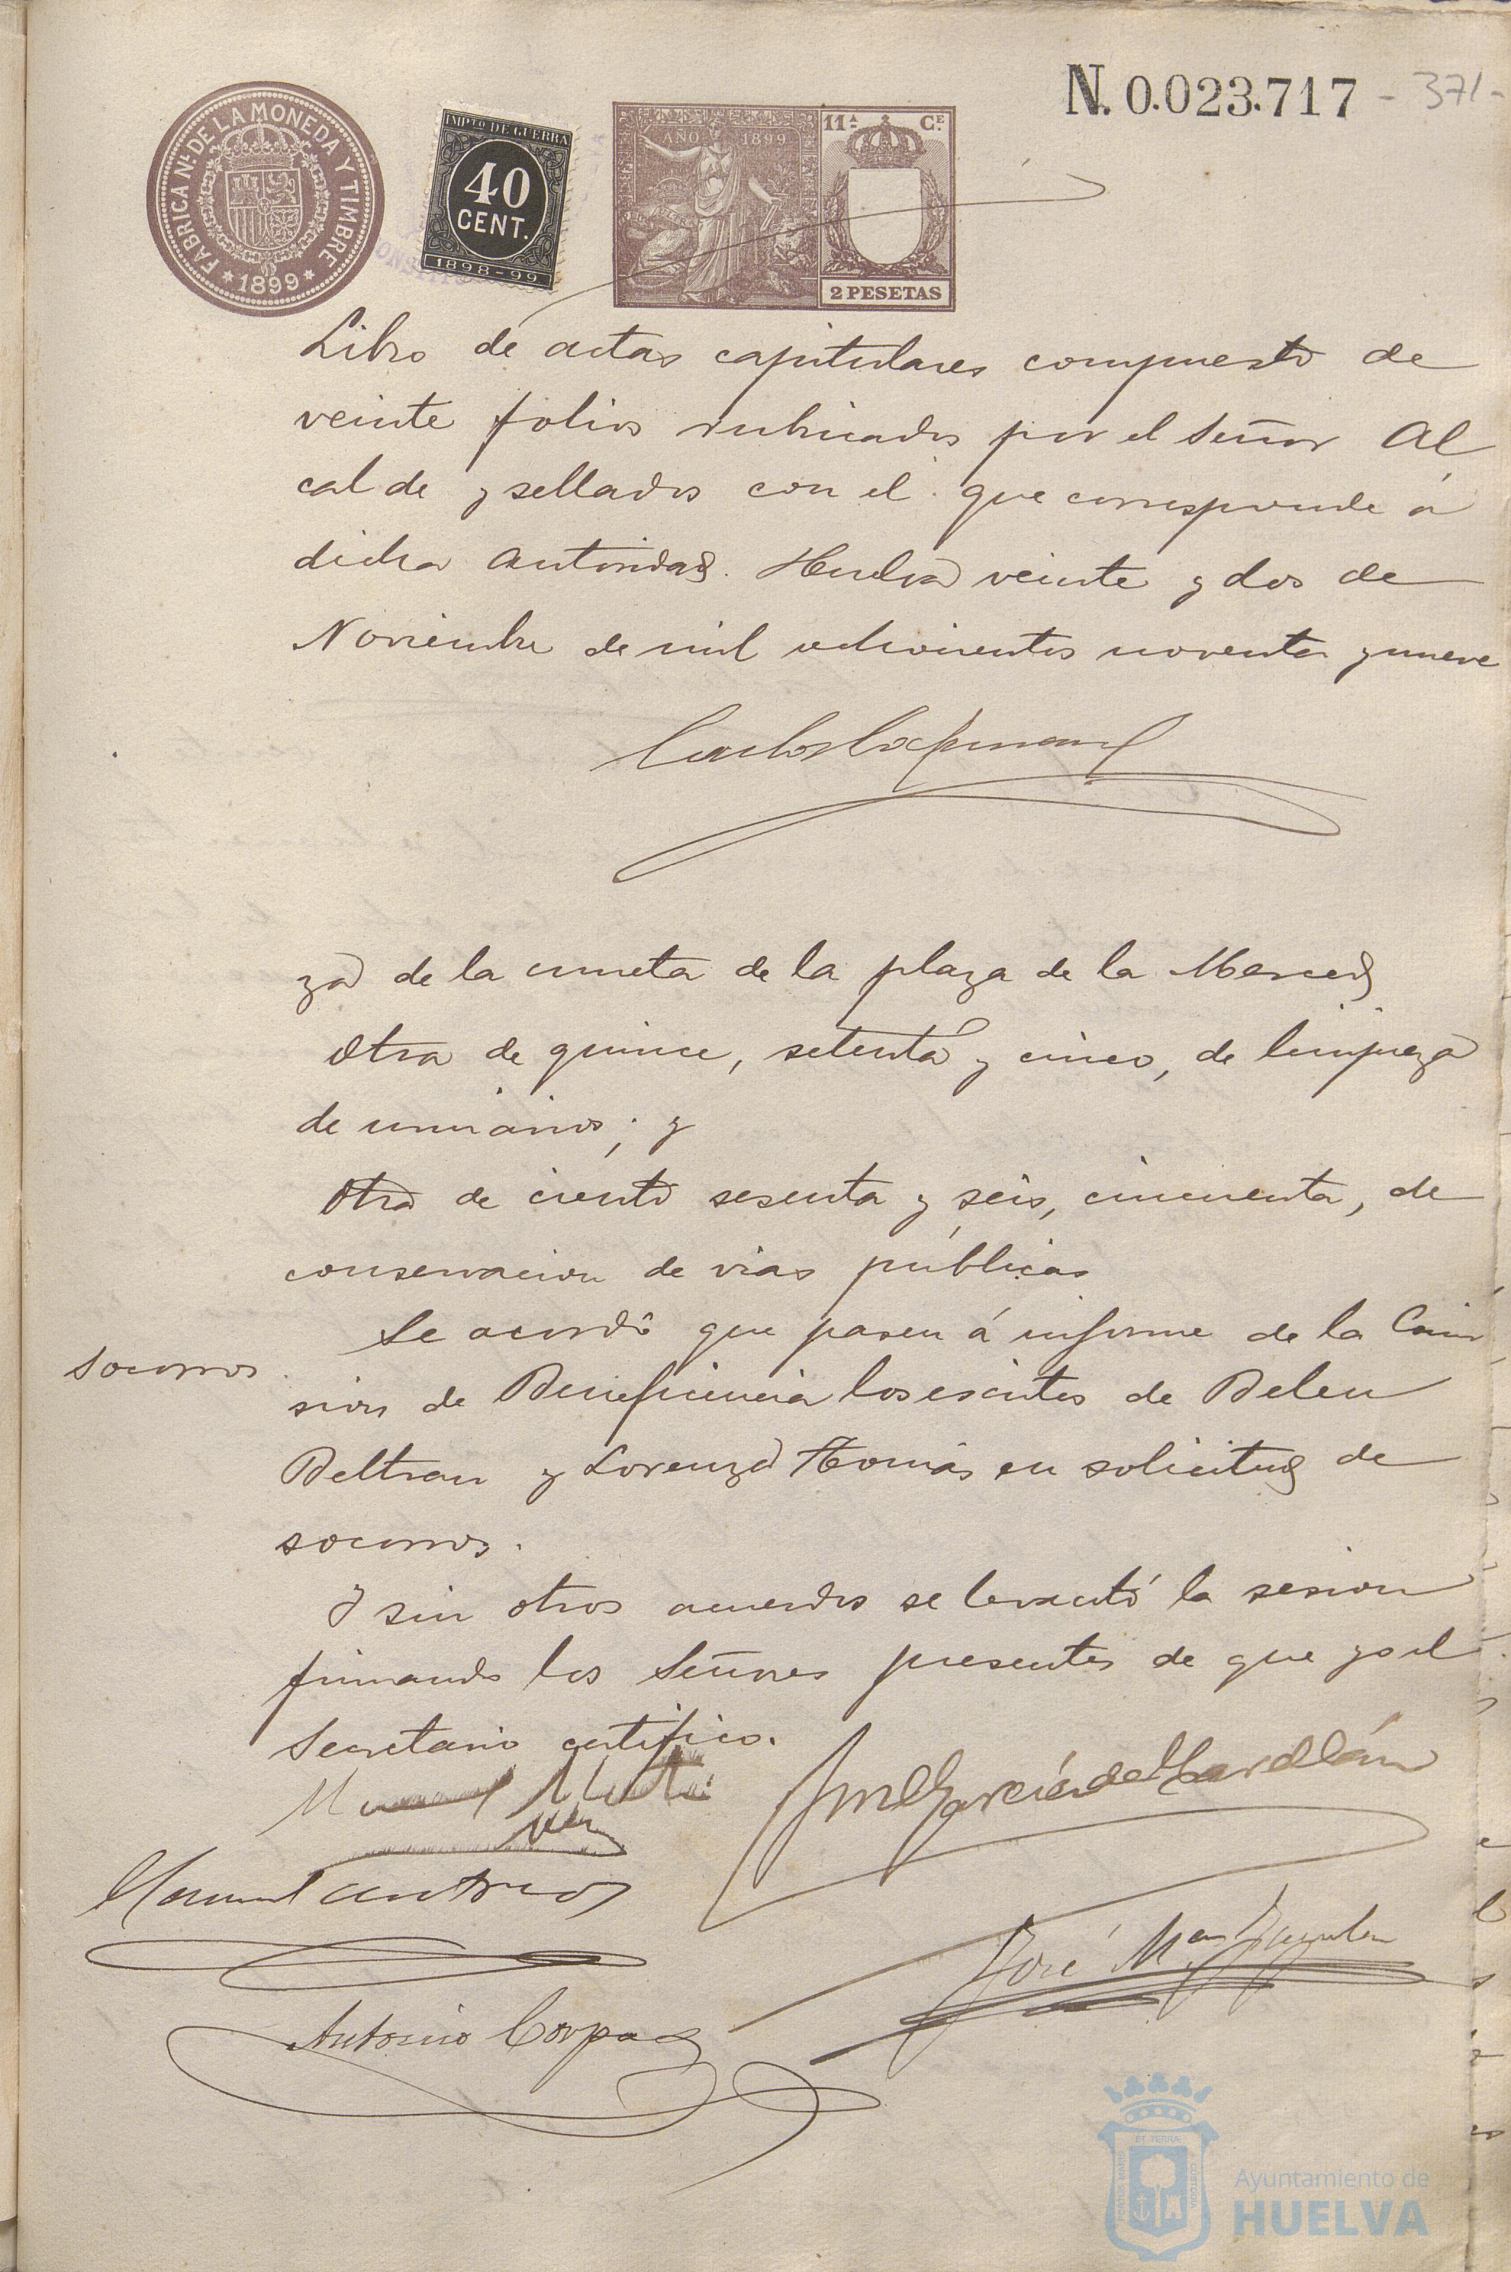 N. 0.023.717 - 371 -
FABRICA NL. DE LA MONEDA Y TIMBRE
* 1899 *
IMPTO DE GUERRA
40
CENT.
1898-99
AÑO 1899
11A CE.
2 PESETAS
Libro de actas capitulares compuesto de
veinte folios rubricados por el Señor Al
calde y sellados con el que corresponde á
dicha autoridad. Huelva veinte y dos de
Noviembre de mil ochocientos noventa y nueve
za de la cuneta de la plaza de la Merced
Otra de quince, setenta y cinco, de limpieza
de urinarios; y
Otra de ciento sesenta y seis, cincuenta, de
conservacion de vias públicas
Se acordó que pasen á informe de la Comi
socorros.
sion de Beneficencia los escritos de Belen
Beltran y Lorenzo Tomás en solicitud de
socorros.
Y sin otros acuerdos se levantó la sesion
firmando los Señores presentes de que yo el
Secretario certifico.
Manuel
García de
Manuel
José Man
Antonio Corpas
Ayuntamiento de
HUELVA